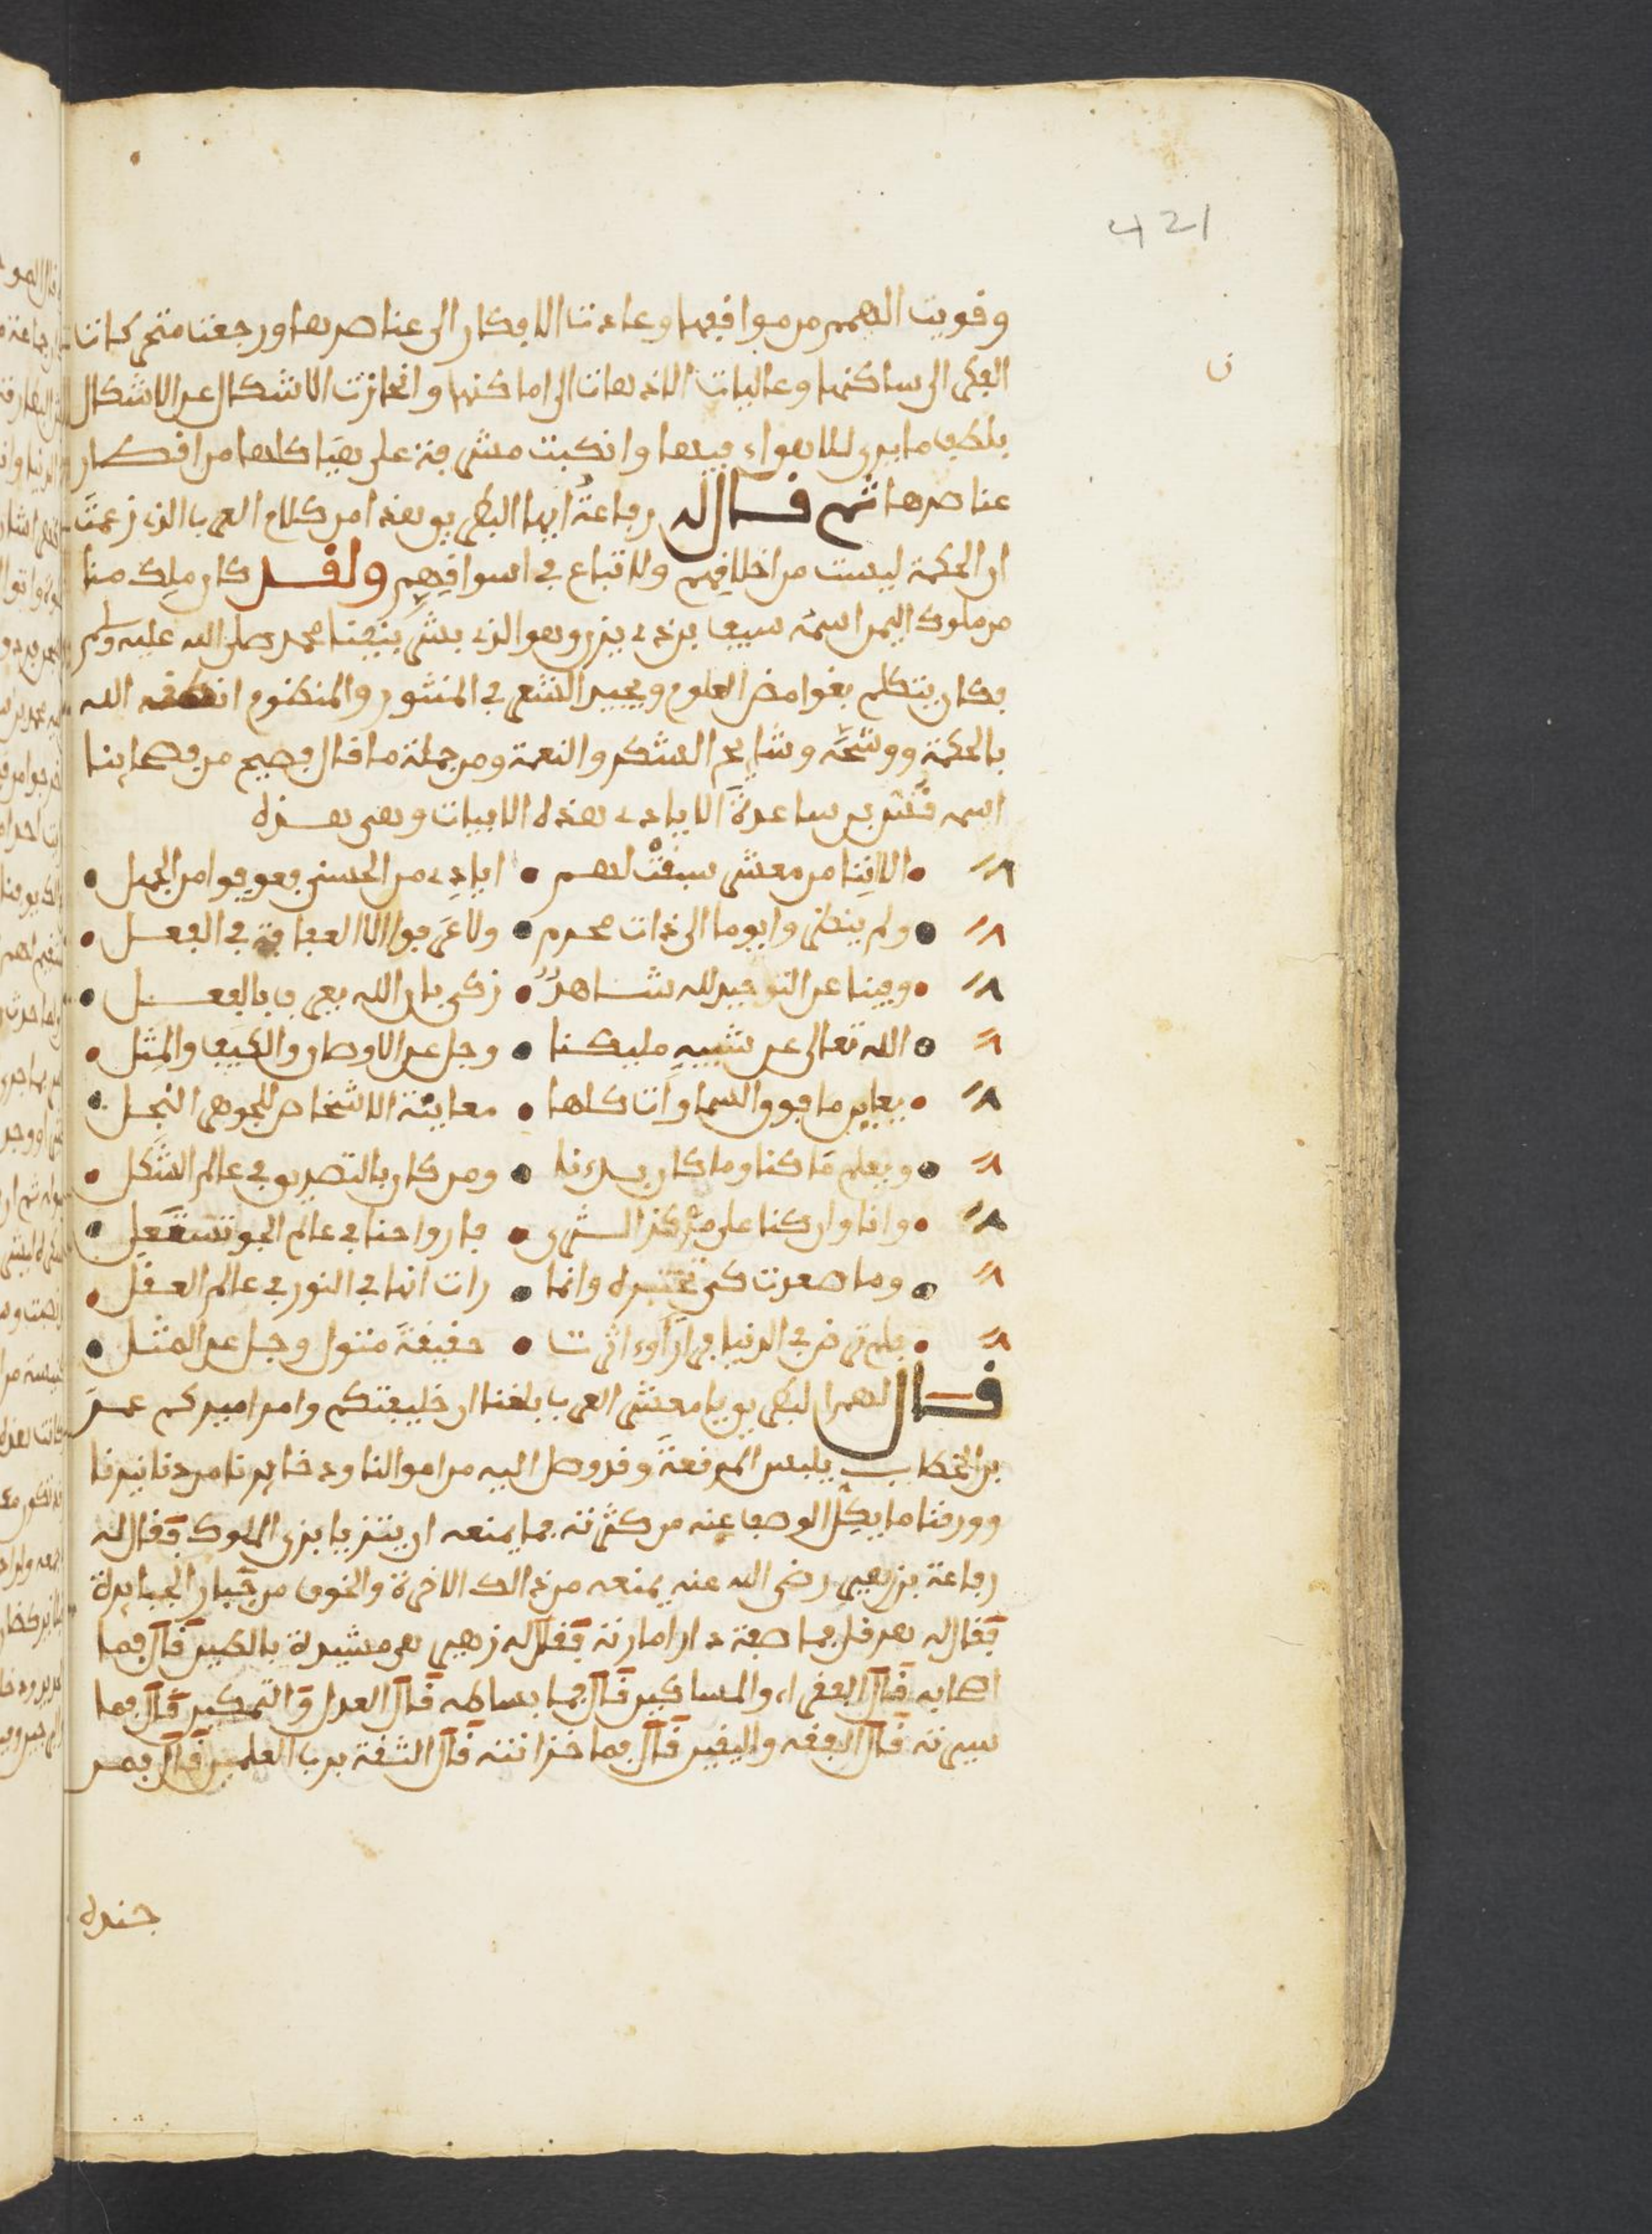 421
وقويت الهمم من مواقيها وعادت الافكار الى عناصرها ورجعت متحركات
ن
الفكر الى ساكنها وعاليات الاذهان الى اماكنها وانحازت الاشكال عن الاشكال
بلطف ما يرى للاهواء فيها وانكبت مشرفة على هياكلها من افكار
عناصرها ثم قال له رفاعة ايها البطريق هذا من كلام العرب الذي زعمت
ان الحكمة ليست من اخلاقهم ولا تباع في اسواقهم ولقد كان ملك منا
من ملوك اليمن اسمه سيف بن ذي يزن وهو الذي بشر بنبينا محمد صلى الله عليه وسلم
فكان يتكلم بغوامض العلوم ويجيد الشعر في المنثور والمنظوم الله
بالحكمة ووشحه وشايح الشكر والنعمة ومن جملة ما قال فصيح من فصحاينا
اسمه قس بن ساعدة الايادي هذه الابيات وهي هذه
الاننا من معشر سبقت لهم • ايادي من الحسنى فعوفوا من الجهل
ولم ينظروا يوما الى ذات محرم • ولا عرفوا الا العفافة في الفعل
وفينا عن التوحيد لله شاهد • زكي بان الله يعرف بالفعل
الله تعالى عن شبيه مليكنا • وجل عن الاوصاف والكيف والمثل
يعاين ما فوق السماوات كلها • معاينة الاشخاص للجوهر النجل
ويعلم ما كنا وما كان بدءنا • ومن كان بالتصديق في عالم الشكل
وانا وان كنا على مركز الثرى • فارواحنا في عالم الجو تستعل
وما صعدت كي تختبره وانما • رات انها في النور في عالم العقل
فلم ترض في الدنيا • حقيقة مثول وجل عن المثل
قال لهم البطريق يا معشر العرب بلغنا ان خليفتكم وامن اميركم عمر
بن الخطاب يلبس المرقعة وقد وصل اليه من اموالنا وذخايرنا من دنانيرنا
وورقنا ما يكل الوصف عنه من كثرته فما يمنعه ان يتزيا بزي الملوك فقال له
رفاعة بن زهير رضي الله عنه يمنعه من ذالك الاخرة والخوف من جبار الجبابرة
فقال له هرقل فما صفة دار امارته فقال له زهير هي مشيدة بالطين قال فما
اصحابه قال الفقراء والمساكين قال فما بساطه قال العدل والتمكين قال فما
سيرته قال الفقه واليقين قال فما خزانته قال الثقة برب العلمين قال فمن
جنده